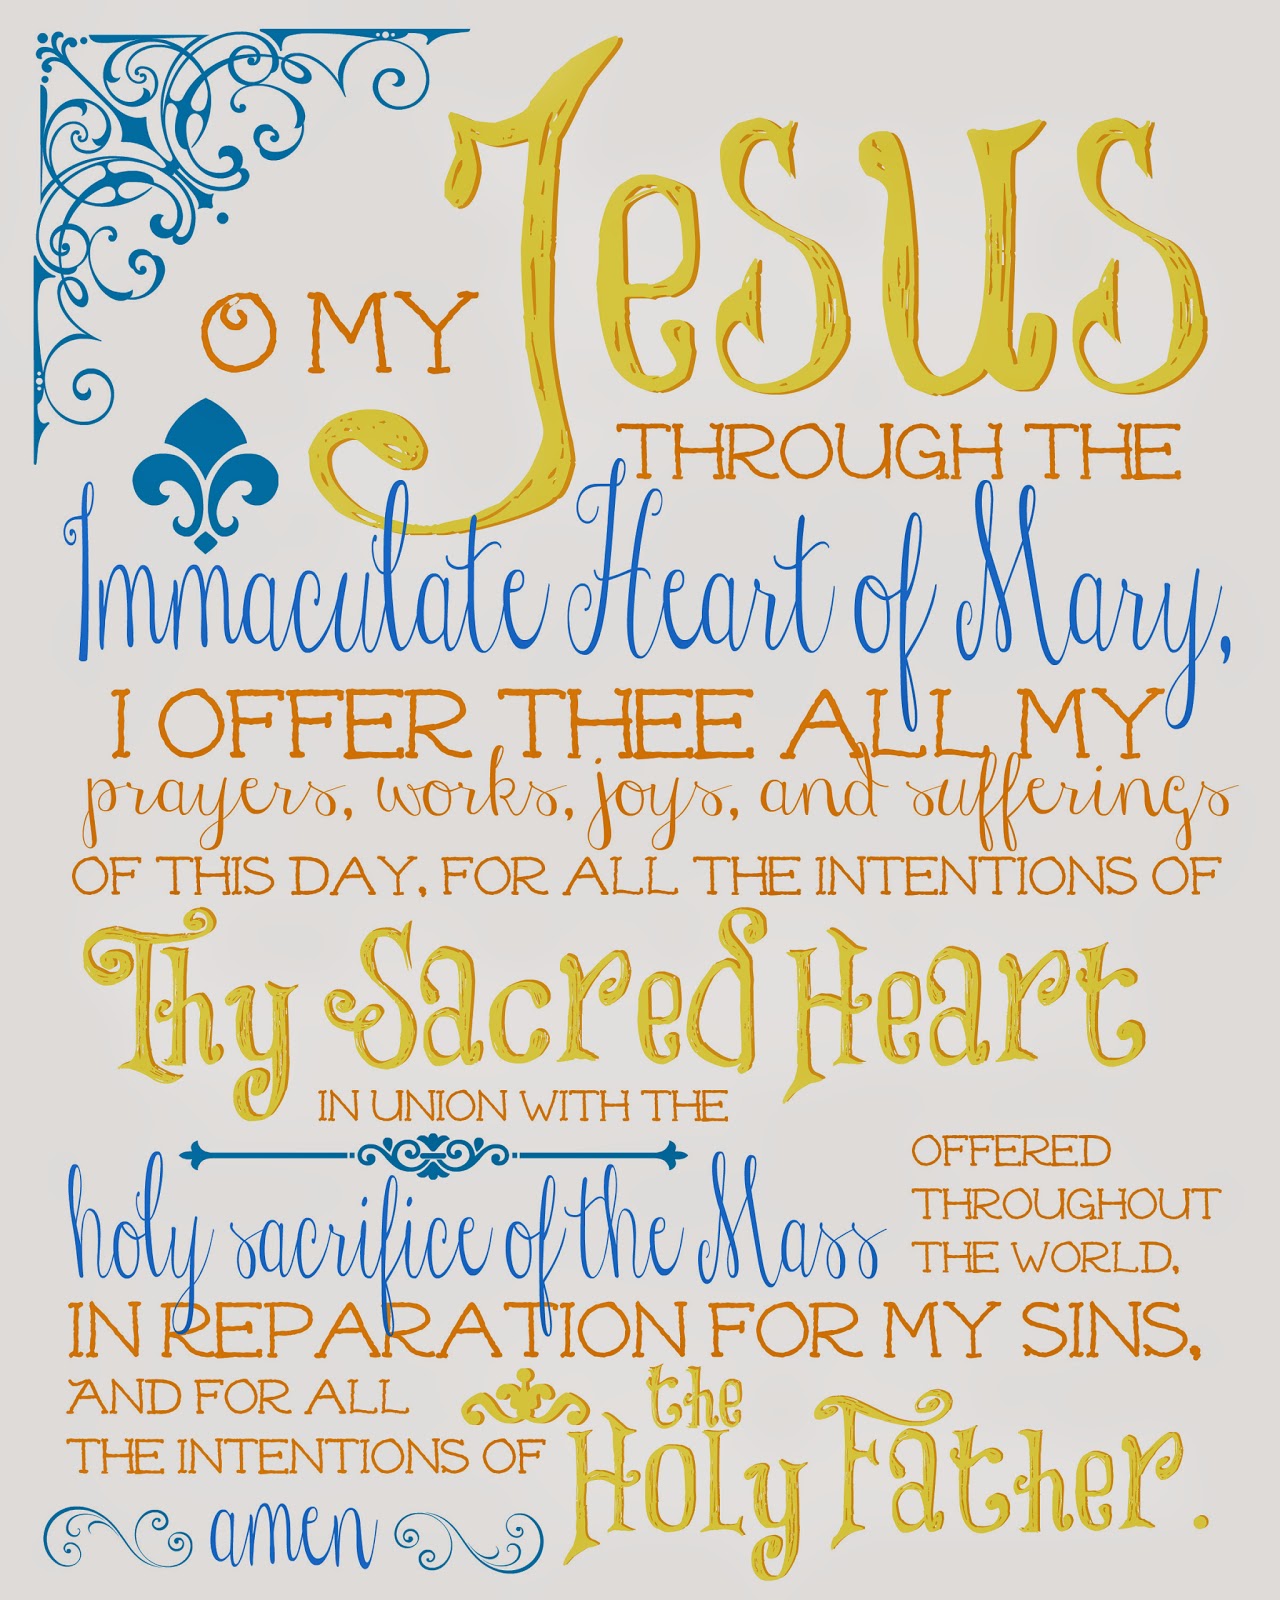 O MY Jesus
THROUGH THE
Immaculate Heart of Mary,
I OFFER THEE ALL MY
prayers, works, joys, and sufferings
OF THIS DAY, FOR ALL THE INTENTIONS OF
Thy Sacred Heart
IN UNION WITH THE
holy sacrifice of the Mass
OFFERED
THROUGHOUT
THE WORLD,
IN REPARATION FOR MY SINS,
AND FOR ALL
THE INTENTIONS OF
the
Holy Father.
amen